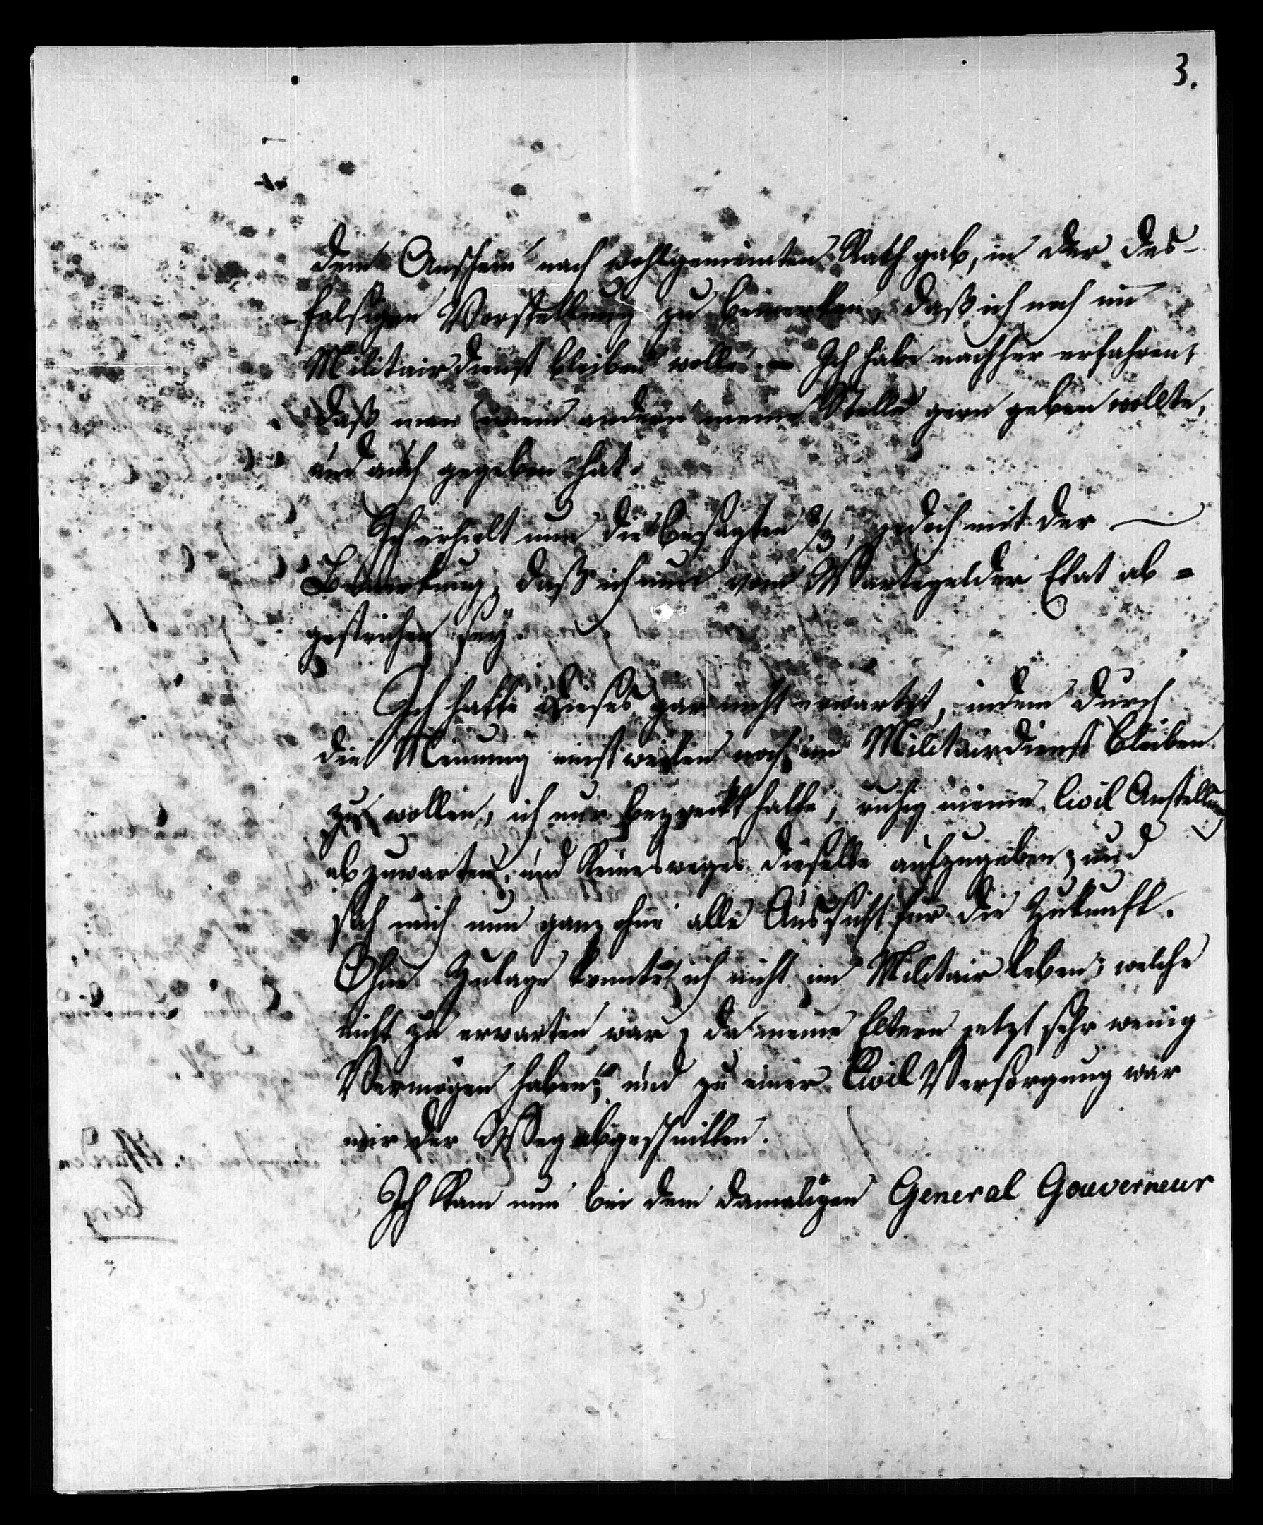 3.
dem Anschein nach wohlgemeinten Rath gab, in der des-
falsigen Vorstellung zu bemerken, daß ich noch im
Militairdienst bleiben wolle. – Ich habe nachher erfahren,
daß man einem andern meine Stelle gern geben wollte,
und auch gegeben hat.
Ich erhielt nun die besagten ⅔, jedoch mit der —
Bemerkung, daß ich nun vom Wartegelder Etat ab-
gestrichen sey.
Ich hatte dieses gar nicht erwartet, indem durch
die Meinung einstweilen noch im Militairdienst bleiben
zu wollen, ich nur bezweckt hatte, ruhig meine Civil Anstellung
abzuwarten, und keinesweges dieselbe aufzugeben; und
sah mich nun ganz ohne alle Aussicht für die Zukunft.
Ohne Zulage konnte ich nicht im Militair leben; welche
nicht zu erwarten war, da meine Eltern jetzt sehr wenig
Vermögen haben; und zu einer Civil Versorgung war
mir der Weg abgeschnitten.
Ich kam nun bei dem damaligen General Gouverneur